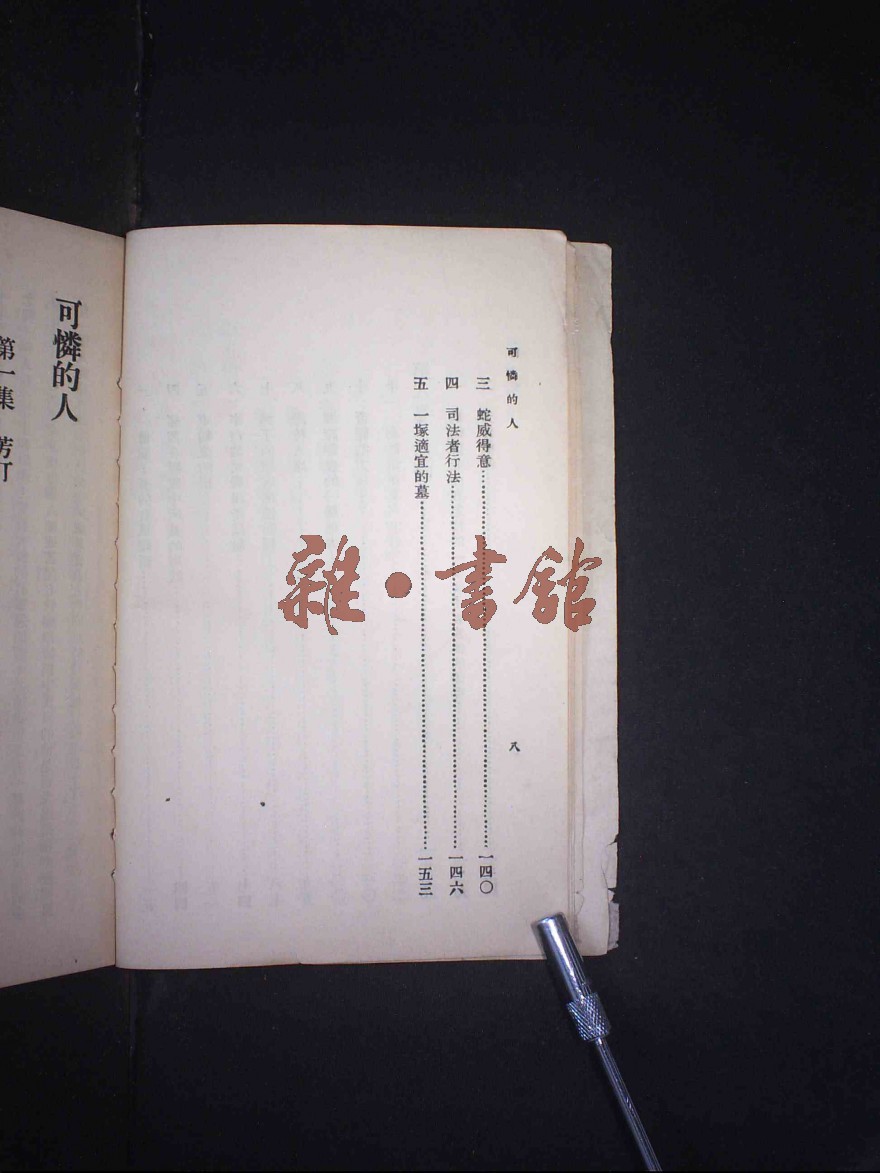 可憐的人
三　蛇威得意……………………一四〇
四　司法者行法……………………一四六
五　一塚適宜的墓……………………一五三
八
可憐的人
第一集　芳汀
雜·書館